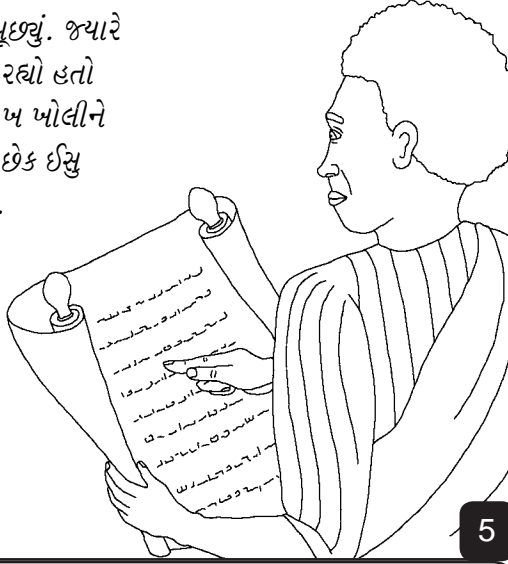 પૂછ્યું. જ્યારે
રહ્યો હતો
ખોલીને
છેક ઈસુ
.
5